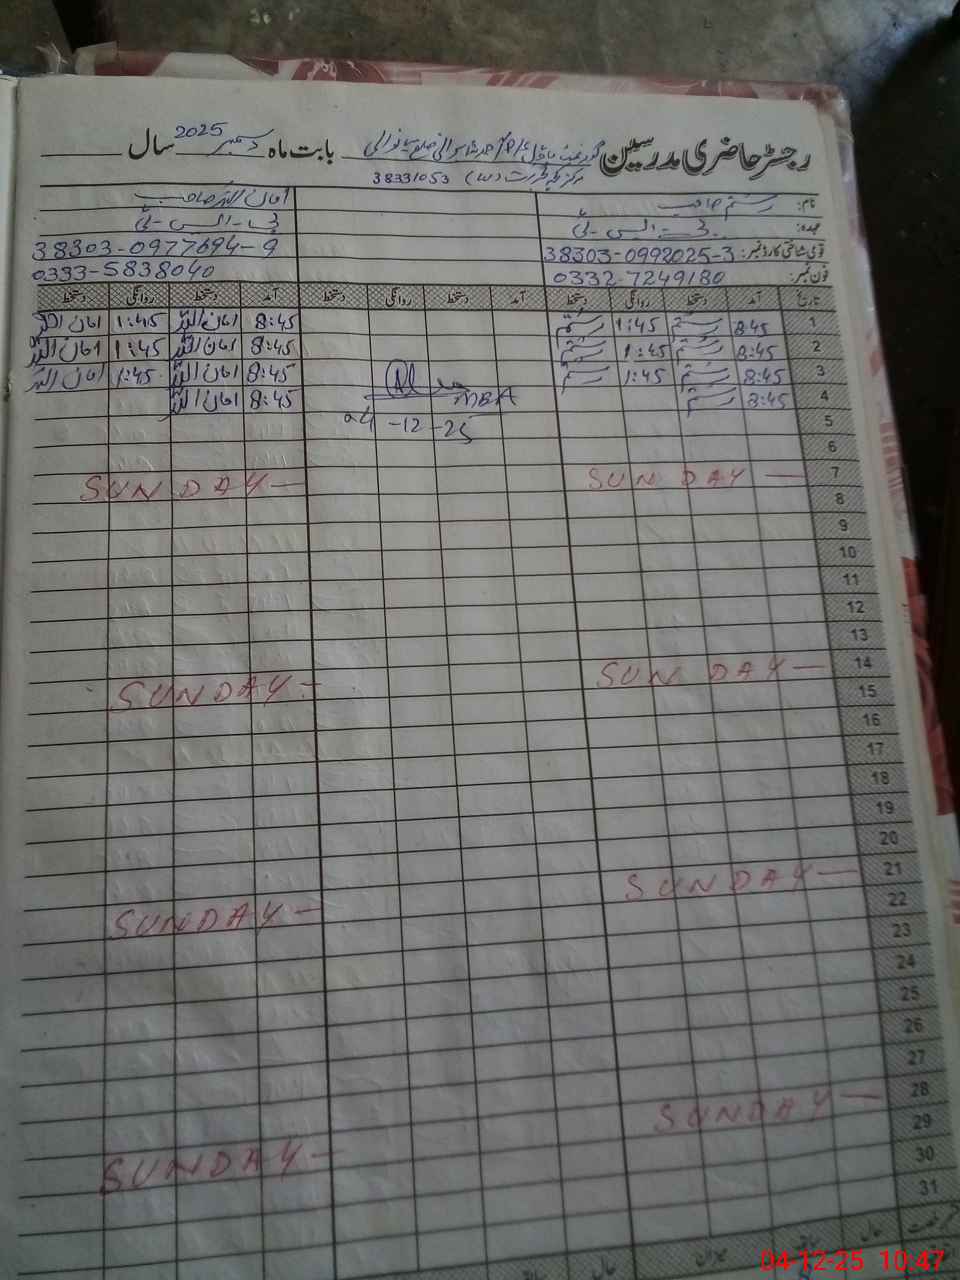 رجسٹر حاضری مدرسین گورنمنٹ ضلع میانوالی بابت ماہ دسمبر 2025 سال
مرکز 38331053 (W)
نام: رستم صاحب امان اللہ صاحب
عہدہ: پی-ایس-ٹی پی-ایس-ٹی
قومی شناختی کارڈ نمبر: 38303-0992025-3 38303-0977694-9
فون نمبر: 0332-7249180 0333-5838040
تاریخ آمد دستخط روانگی دستخط آمد دستخط روانگی دستخط آمد دستخط روانگی دستخط
1 8:45 رستم 1:45 رستم 8:45 امان اللہ 1:45 امان اللہ
2 8:45 رستم 1:45 رستم 8:45 امان اللہ 1:45 امان اللہ
3 8:45 رستم 1:45 رستم 8:45 امان اللہ 1:45 امان اللہ
4 8:45 رستم MEA 8:45 امان اللہ
5 04-12-25
6
7 SUNDAY — SUNDAY —
8
9
10
11
12
13
14 SUNDAY — SUNDAY —
15
16
17
18
19
20
21 SUNDAY — SUNDAY —
22
23
24
25
26
27
28 SUNDAY — SUNDAY —
29
30
31
04-12-25 10:47